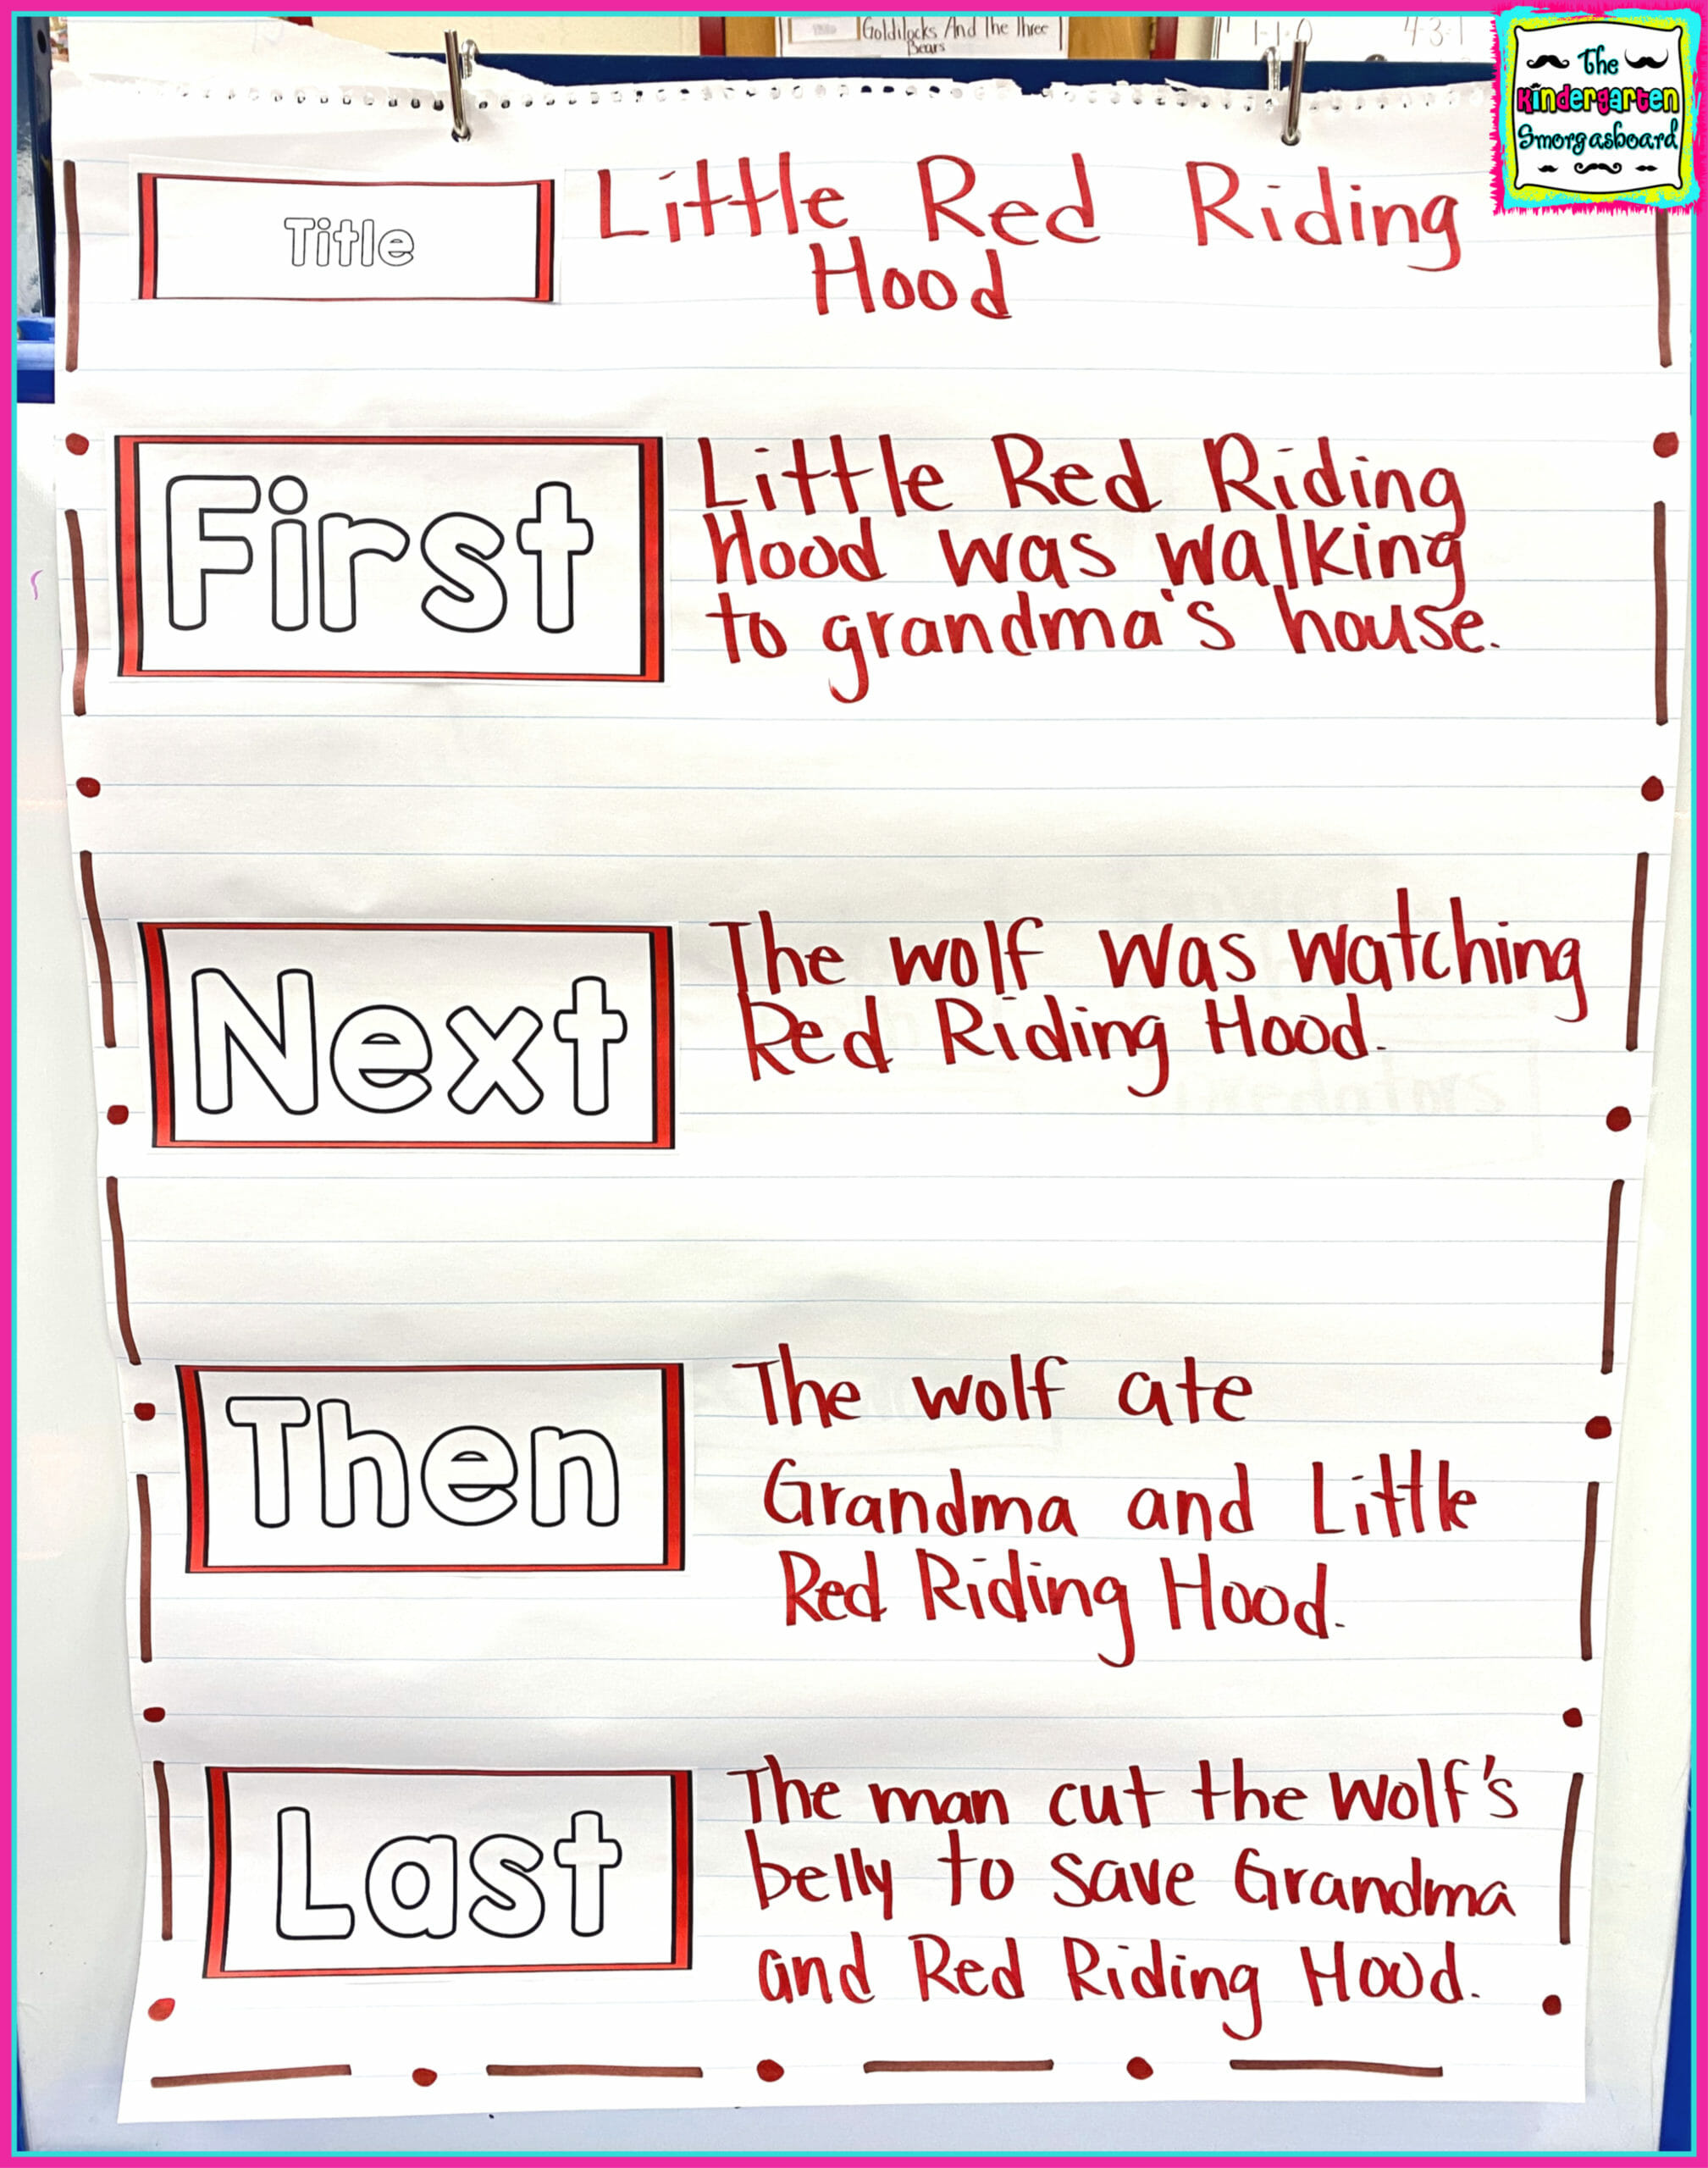 Goldilocks And The Three
Bears
1-1=0
4-3=1
The
Kindergarten
Smorgasboard
Title
Little Red Riding
Hood
First
Little Red Riding
Hood was walking
to grandma's house.
Next
The wolf was watching
Red Riding Hood.
Then
The wolf ate
Grandma and Little
Red Riding Hood.
Last
The man cut the wolf's
belly to save Grandma
and Red Riding Hood.